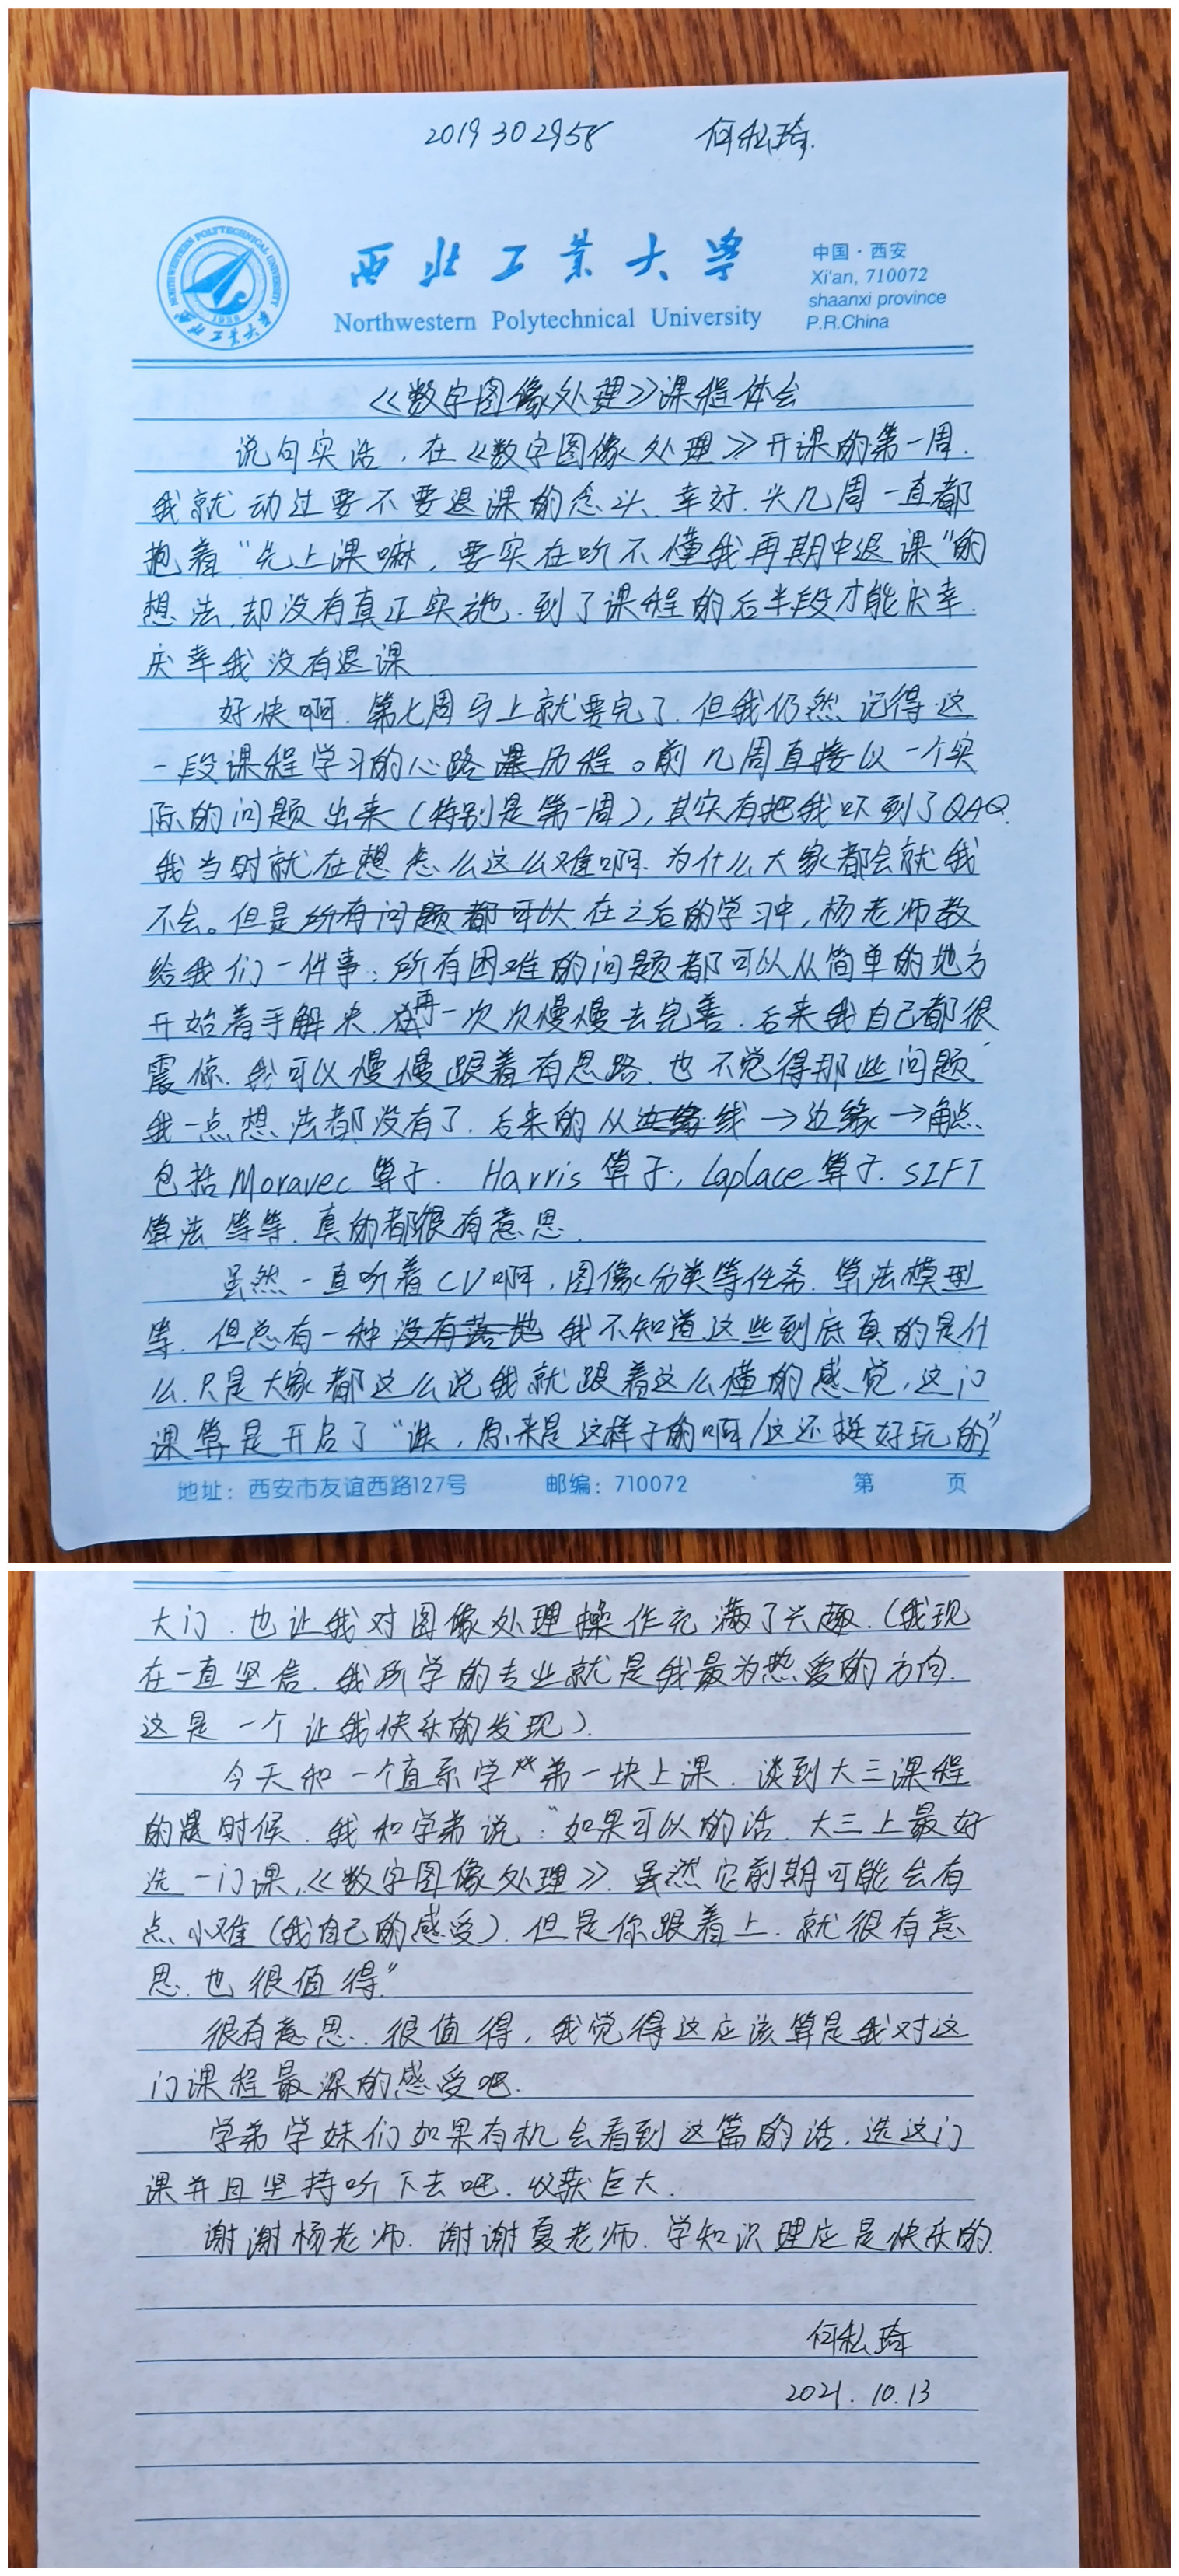 2019302958 何私琦.
NORTHWESTERN POLYTECHNICAL UNIVERSITY
西北工业大学
西北工业大学
Northwestern Polytechnical University
中国·西安
Xi'an, 710072
shaanxi province
P.R.China
《数字图像处理》课程体会
说句实话,在《数字图像处理》开课的第一周.
我就动过要不要退课的念头、幸好.头几周一直都
抱着“先上课嘛,要实在听不懂我再期中退课”的
想法.却没有真正实施.到了课程的后半段才能庆幸.
庆幸我没有退课
好快啊.第七周马上就要完了.但我仍然记得这
一段课程学习的心路历程。前几周直接以一个实
际的问题出来(特别是第一周),其实有把我吓到了QAQ.
我当时就在想怎么这么难啊.为什么大家都会就我
不会。但是所有问题都可以.在之后的学习中,杨老师教
给我们一件事:所有困难的问题都可以从简单的地方
开始着手解决.再一次次慢慢去完善.后来我自己都很
震惊.我可以慢慢跟着有思路.也不觉得那些问题
我一点想法都没有了.后来的从边缘线→边缘→角点
包括Moravec算子. Harris算子, Laplace算子. SIFT
算法等等.真的都很有意思.
虽然一直听着CV啊,图像分类等任务.算法模型
等.但总有一种没有落地我不知道这些到底真的是什
么.只是大家都这么说我就跟着这么懂的感觉,这门
课算是开启了“诶,原来是这样子的啊/这还挺好玩的”
地址:西安市友谊西路127号 邮编:710072 第 页
大门.也让我对图像处理操作充满了兴趣.(我现
在一直坚信.我所学的专业就是我最为热爱的方向.
这是一个让我快乐的发现).
今天和一个直系学弟一块上课.谈到大三课程
的时候.我和学弟说:“如果可以的话.大三上最好
选一门课,《数字图像处理》.虽然它前期可能会有
点小难(我自己的感受).但是你跟着上.就很有意
思.也很值得.”
很有意思.很值得,我觉得这应该算是我对这
门课程最深的感受吧.
学弟学妹们如果有机会看到这篇的话,选这门
课并且坚持听下去吧.收获巨大.
谢谢杨老师.谢谢夏老师.学知识理应是快乐的.
何私琦
2021.10.13